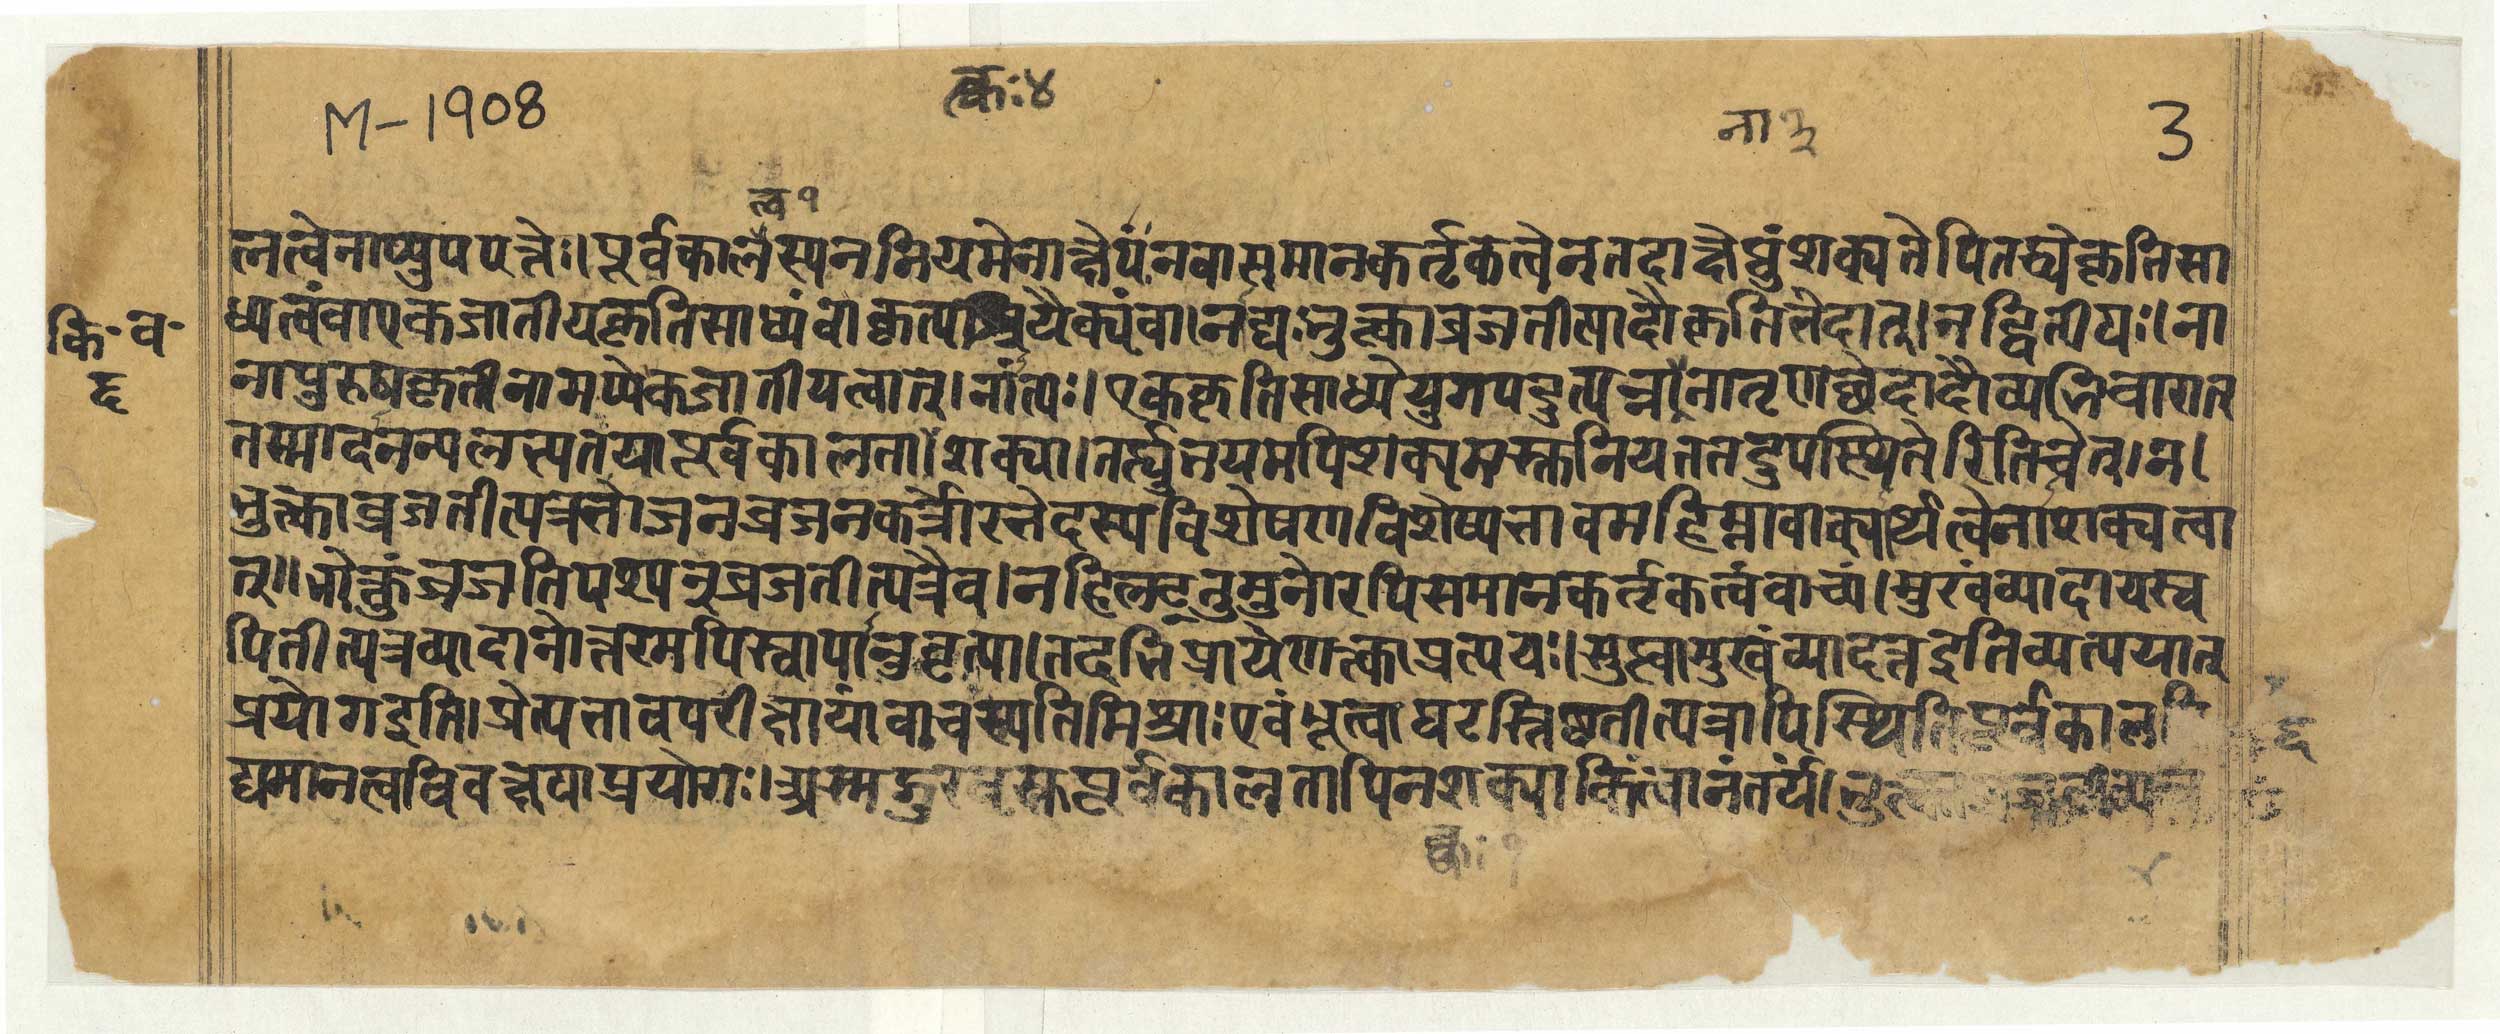 M-1908
त्कः४
ना३
3
त्व१
लत्वेनाप्युपपत्तेः। पूर्वकालस्य न नियमेनाक्षेपः न वा समानकर्तृकत्वेन तदाक्षेप्तुं शक्यतेपि तद्ध्येकृतिसा
ध्यत्वं वा एकजातीयकृतिसाध्यं वा कृत्याश्रयैक्यं वा। नाद्यः भुत्का व्रजतीत्यादौ कृतिभेदात्। न द्वितीयः। ना
कि·व·
द्द
नापुरुषकृतीनामप्येकजातीयत्वात्। नांत्यः। एककृतिसाध्ये युगपदुत्पन्नानातृणछेदादौ व्यभिचारात्
तस्मादनन्यलभ्यतया पूर्वकालता शक्या। तर्ह्युनयमपि शक्यमस्तु नियततदुपस्थितेरिति चेत्। न।
भुत्का व्रजतीत्यत्र भोजनव्रजनकर्त्रोरभेदस्य विशेषणविशेष्यभावमहिम्ना वाक्यार्थत्वेनाशक्यत्वा
त्॥ भोक्तुं व्रजति पश्यन् व्रजतीत्यत्रैव। न हि लट्तुमुनोरपि समानकर्तृकत्वं वाच्यं। मुखं व्यादाय स्व
पितीत्यत्र व्यादानोत्तरमपि स्वापानुवृत्त्या। तदभिप्रायेण त्काप्रत्ययः। सुप्त्वा मुखं व्यादत्त इति व्यत्ययात्
प्रयोग इति। प्रेत्यभावपरीक्षायां वाचस्पतिमिश्राः एवं भूत्वा घटस्तिष्ठतीत्यत्रापि स्थितिपूर्वकाल
द्द
द्यमानत्वविवक्षया प्रयोगः। अस्मद्गुरवस्तु पूर्वकालतापि न शक्या किंत्वानंतर्यं। भुत्का व्रजतीत्यत्र
कः१